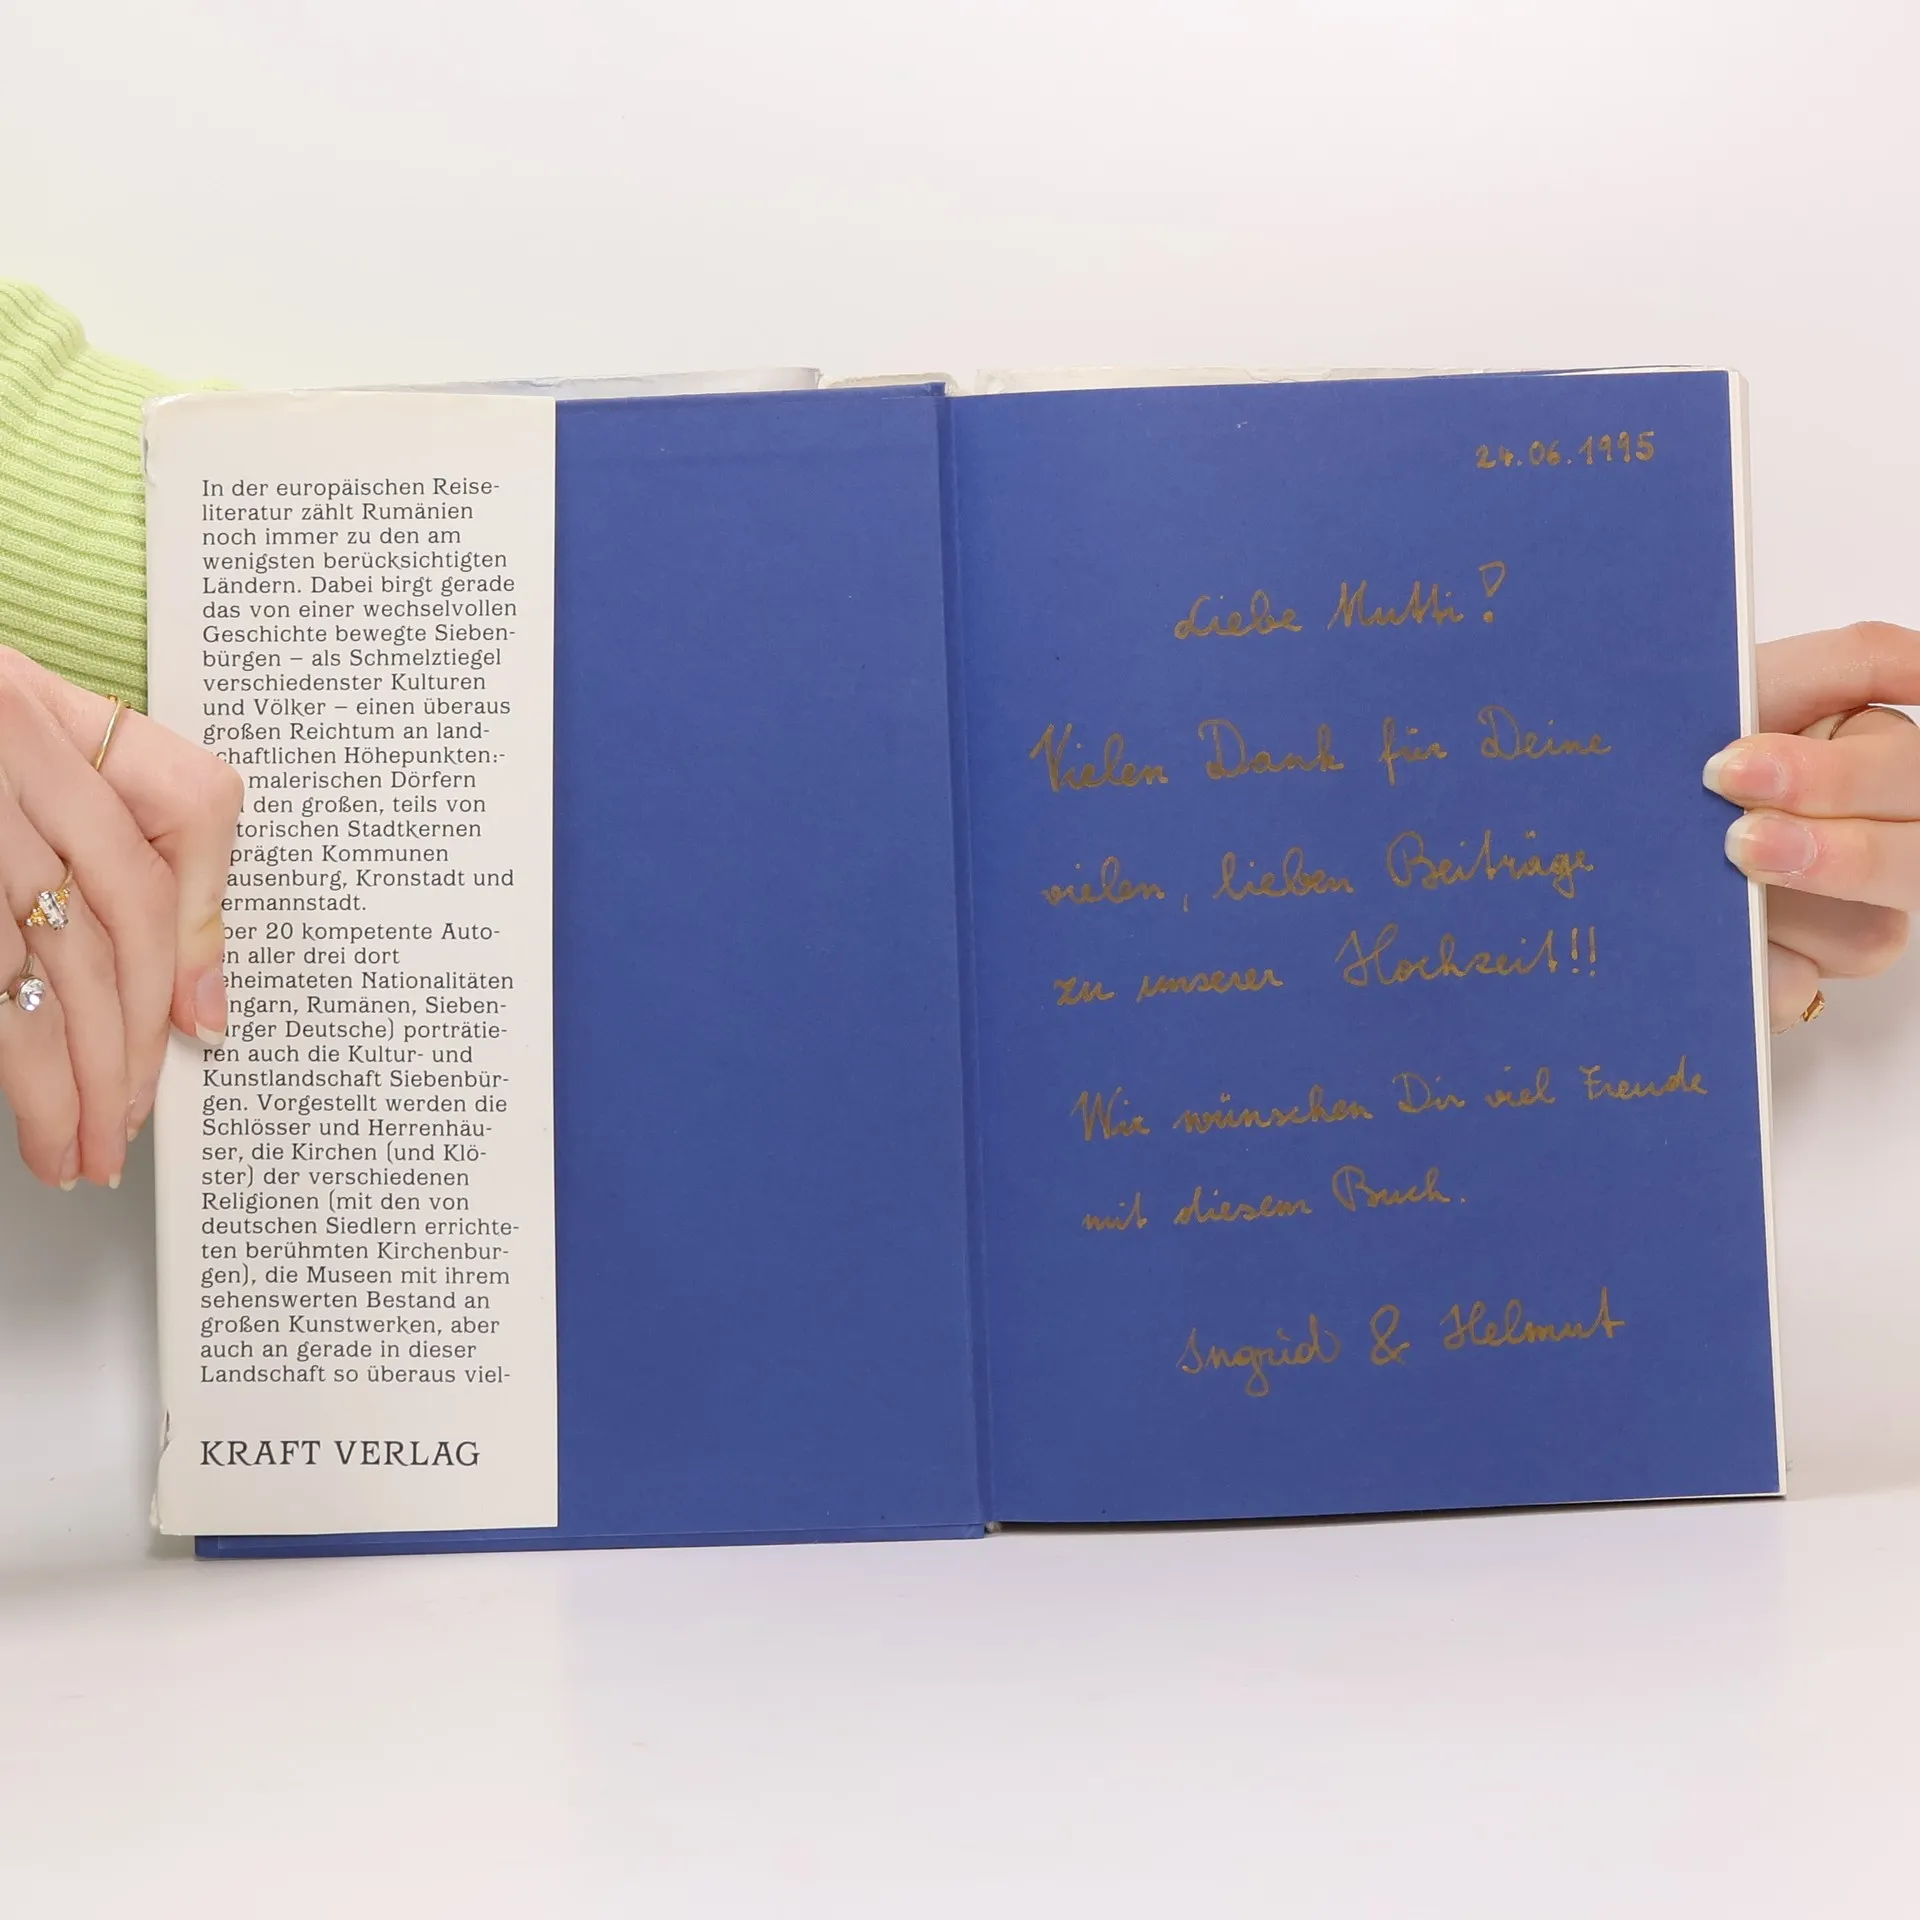 In der europäischen Reise-
literatur zählt Rumänien
noch immer zu den am
wenigsten berücksichtigten
Ländern. Dabei birgt gerade
das von einer wechselvollen
Geschichte bewegte Sieben-
bürgen – als Schmelztiegel
verschiedenster Kulturen
und Völker – einen überaus
großen Reichtum an land-
chaftlichen Höhepunkten:-
malerischen Dörfern
den großen, teils von
torischen Stadtkernen
prägten Kommunen
ausenburg, Kronstadt und
ermannstadt.
ber 20 kompetente Auto-
en aller drei dort
eheimateten Nationalitäten
ngarn, Rumänen, Sieben-
rger Deutsche) porträtie-
ren auch die Kultur- und
Kunstlandschaft Siebenbür-
gen. Vorgestellt werden die
Schlösser und Herrenhäu-
ser, die Kirchen (und Klö-
ster) der verschiedenen
Religionen (mit den von
deutschen Siedlern errichte-
ten berühmten Kirchenbur-
gen), die Museen mit ihrem
sehenswerten Bestand an
großen Kunstwerken, aber
auch an gerade in dieser
Landschaft so überaus viel-
KRAFT VERLAG
24.06.1995
Liebe Mutti!
Vielen Dank für Deine
vielen, lieben Beiträge
zu unserer Hochzeit!!
Wir wünschen Dir viel Freude
mit diesem Buch.
Ingrid & Helmut